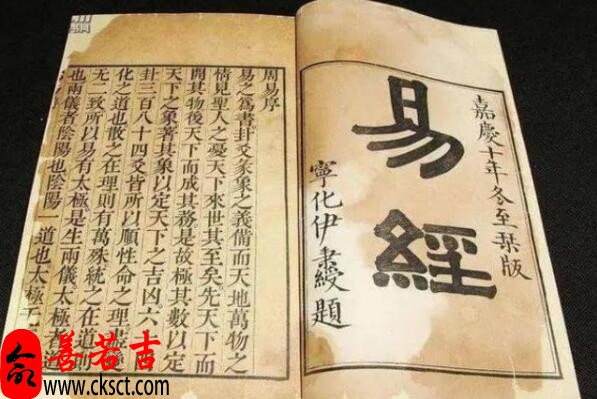 嘉慶十年冬至栞版
易經
寧化伊秉綬題
周易序
易之為書卦爻彖象之義備而天地萬物之
情見聖人之憂天下來世其至矣先天下而
開其物後天下而成其務是故極其數以定
天下之象著其象以定天下之吉凶六
卦三百八十四爻皆所以順性命之理
化之道也散之在理則有萬殊統之在道則
無二致所以易有太極是生兩儀太極者道
也兩儀者陰陽也陰陽一道也太極
善若吉
www.cksct.com